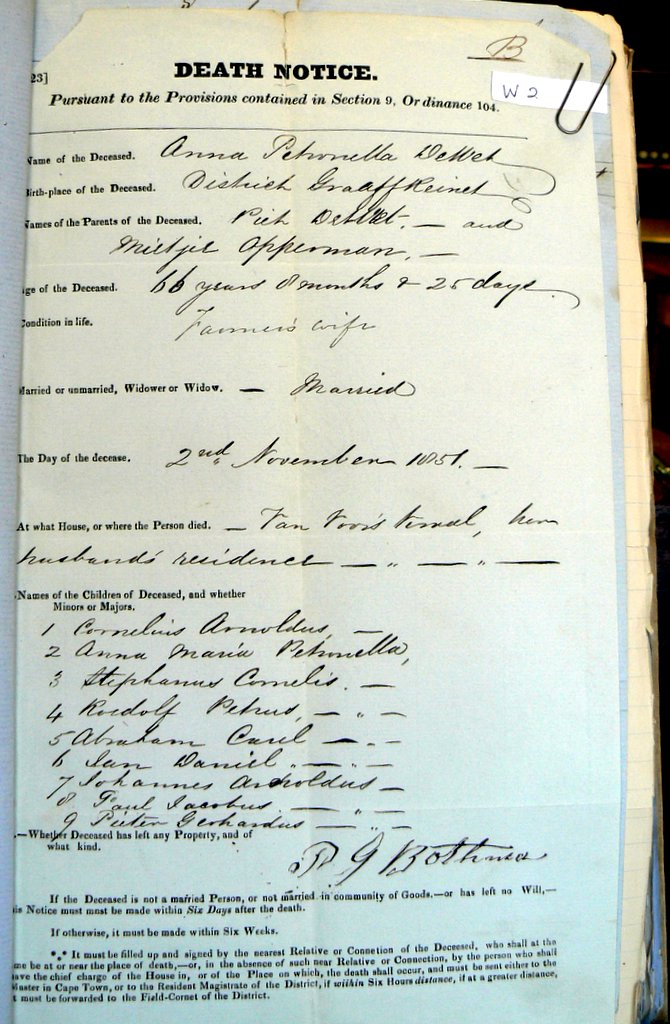 B
23]
DEATH NOTICE.
W 2
Pursuant to the Provisions contained in Section 9, Ordinance 104.
Name of the Deceased. Anna Petronella DeWet
Birth-place of the Deceased. District Graaff Reinet
Names of the Parents of the Deceased. Piet DeWet, — and
Mietjie Opperman, —
Age of the Deceased. 66 years 8 months & 25 days
Condition in life. Farmer's wife
Married or unmarried, Widower or Widow. — Married
The Day of the decease. 2nd November 1851. —
At what House, or where the Person died. — Van Voors, her
husband's residence — „ — „ —
Names of the Children of Deceased, and whether
Minors or Majors.
1 Cornelius Arnoldus, —
2 Anna Maria Petronella,
3 Stephanus Cornelis. —
4 Roedolf Petrus, — „ —
5 Abraham Carel — „ —
6 Jan Daniel „ — „ —
7 Johannes Arnoldus —
8 Paul Jacobus. — „ —
9 Pieter Gerhardus — „ —
.—Whether Deceased has left any Property, and of
what kind.
P G Bothma
If the Deceased is not a married Person, or not married in community of Goods.—or has left no Will,—
is Notice must most be made within Six Days after the death.
If otherwise, it must be made within Six Weeks.
*,* It must be filled up and signed by the nearest Relative or Connetion of the Deceased, who shall at the
me be at or near the place of death,—or, in the absence of such near Relative or Connection, by the person who shall
ave the chief charge of the House in, or of the Place on which, the death shall occur, and must be sent either to the
Master in Cape Town, or to the Resident Magistrate of the District, if within Six Hours distance, if at a greater distance,
t must be forwarded to the Field-Cornet of the District.